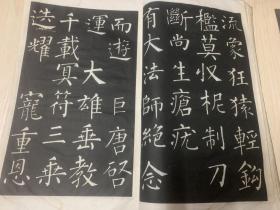 流象狂猿輕鉤
檻莫収柅制刀
斷尚生瘡疣
有大法師絕念
而遊 巨唐啓
運 大雄垂教
千載冥符三乗
迭耀 寵重恩